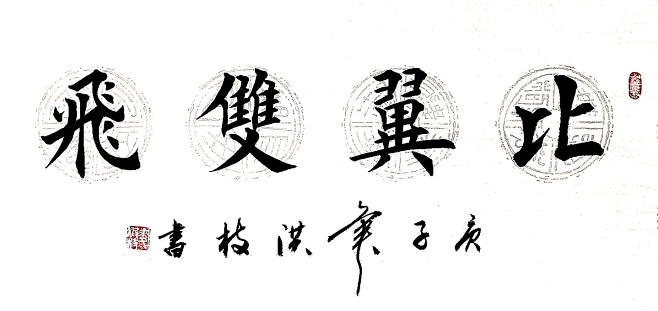 比翼雙飛
庚子年洪枝書